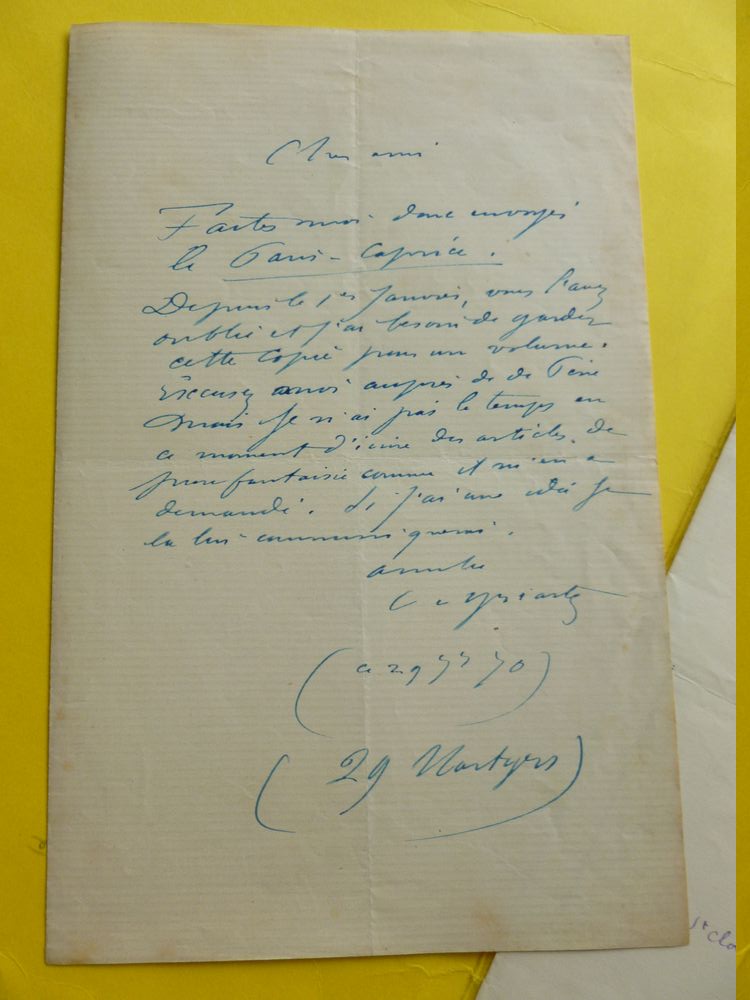 Cher ami
Faites moi donc envoyer
le Paris-Caprice.
Depuis le 1er Janvier, vous l'avez
oublié et j'ai besoin de garder
cette copie pour un volume.
Excusez moi auprès de de Pène
mais je n'ai pas le temps en
ce moment d'écrire des articles de
pure fantaisie comme il m'en a
demandé. Si j'ai une idée je
la lui communiquerai.
amitiés
Ch Yriarte
(ce 29 70)
(29 Martyrs)
St Clo